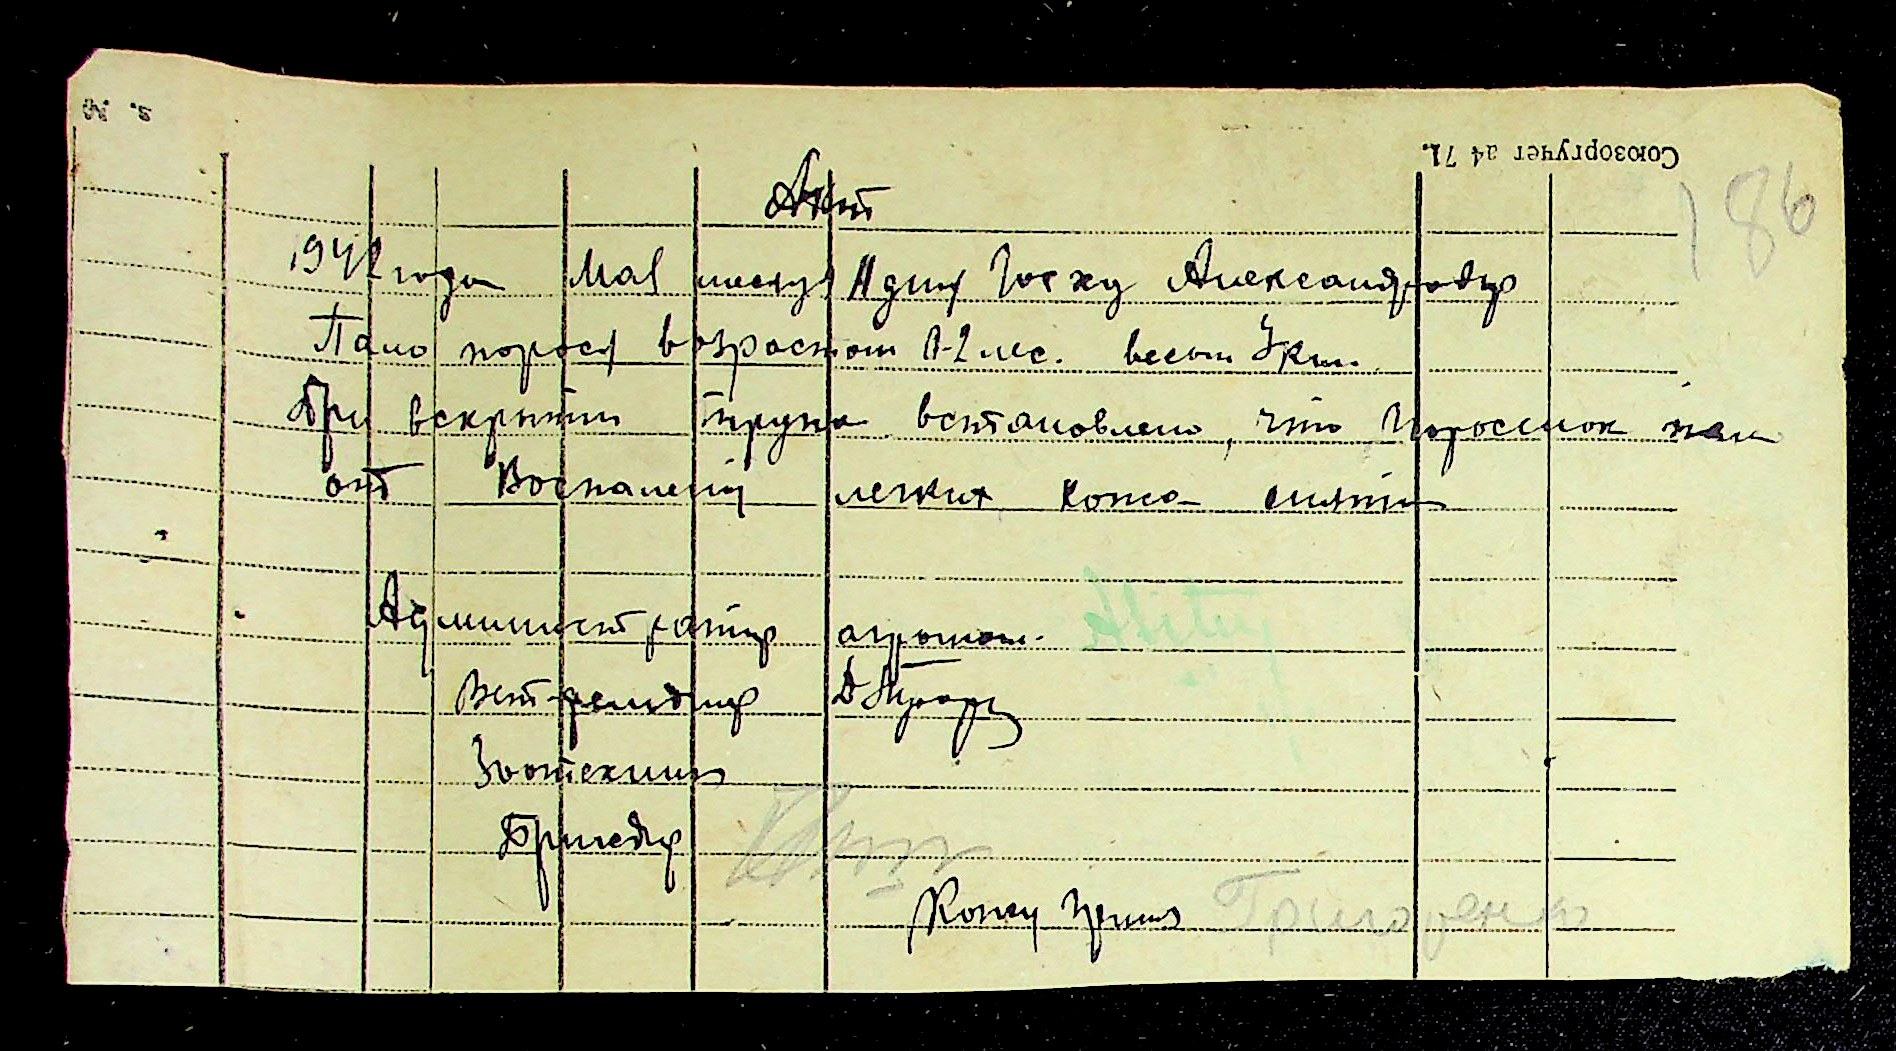 Союзоргучет а4 71.
186
Акт
1942 года Мая месяця 11 дня Госху Александродар
Пало порося возрастом 1-2 мес. весом 3 кгм.
При вскрытии трупа встановлено, что поросенок пал
от Воспаления легких кожа снята
Администратор агроном.
Вет-фельдшер
Зоотехник
Бригадир
Кожу принял Григоренко